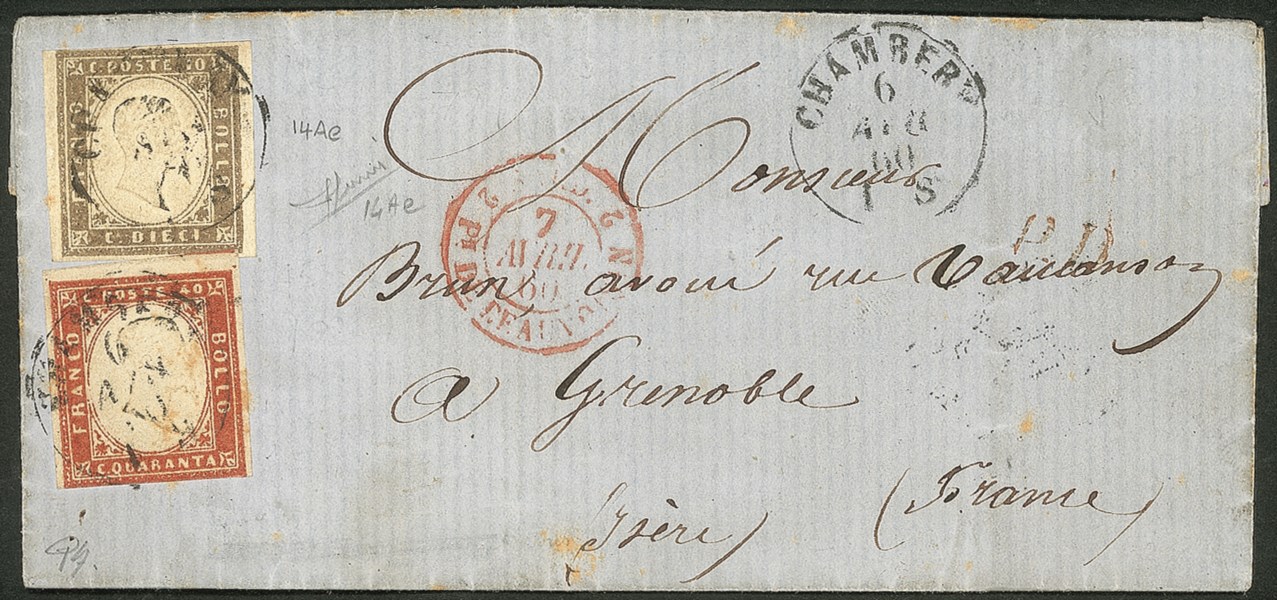 C. POSTE 10
FRANCO
BOLLO
C. DIECI
14Ae
14Ae
CHAMBERY
6
AVR
60
1 S
7
AVRIL
60
Monsieur
Brun avoué rue Vaucanson
P.D.
a Grenoble
(France)
Isère)
C. POSTE 40
FRANCO
BOLLO
C. QUARANTA
6